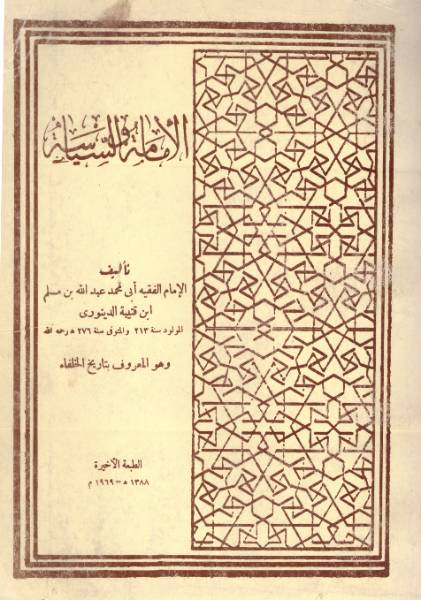 الإمامة والسياسة
تأليف
الإمام الفقيه أبى محمد عبد الله بن مسلم
ابن قتيبة الدينورى
المولود سنة ٢١٣ والمتوفى سنة ٢٧٦ ه رحمه الله
وهو المعروف بتاريخ الخلفاء
الطبعة الأخيرة
١٣٨٨ ه = ١٩٦٩ م